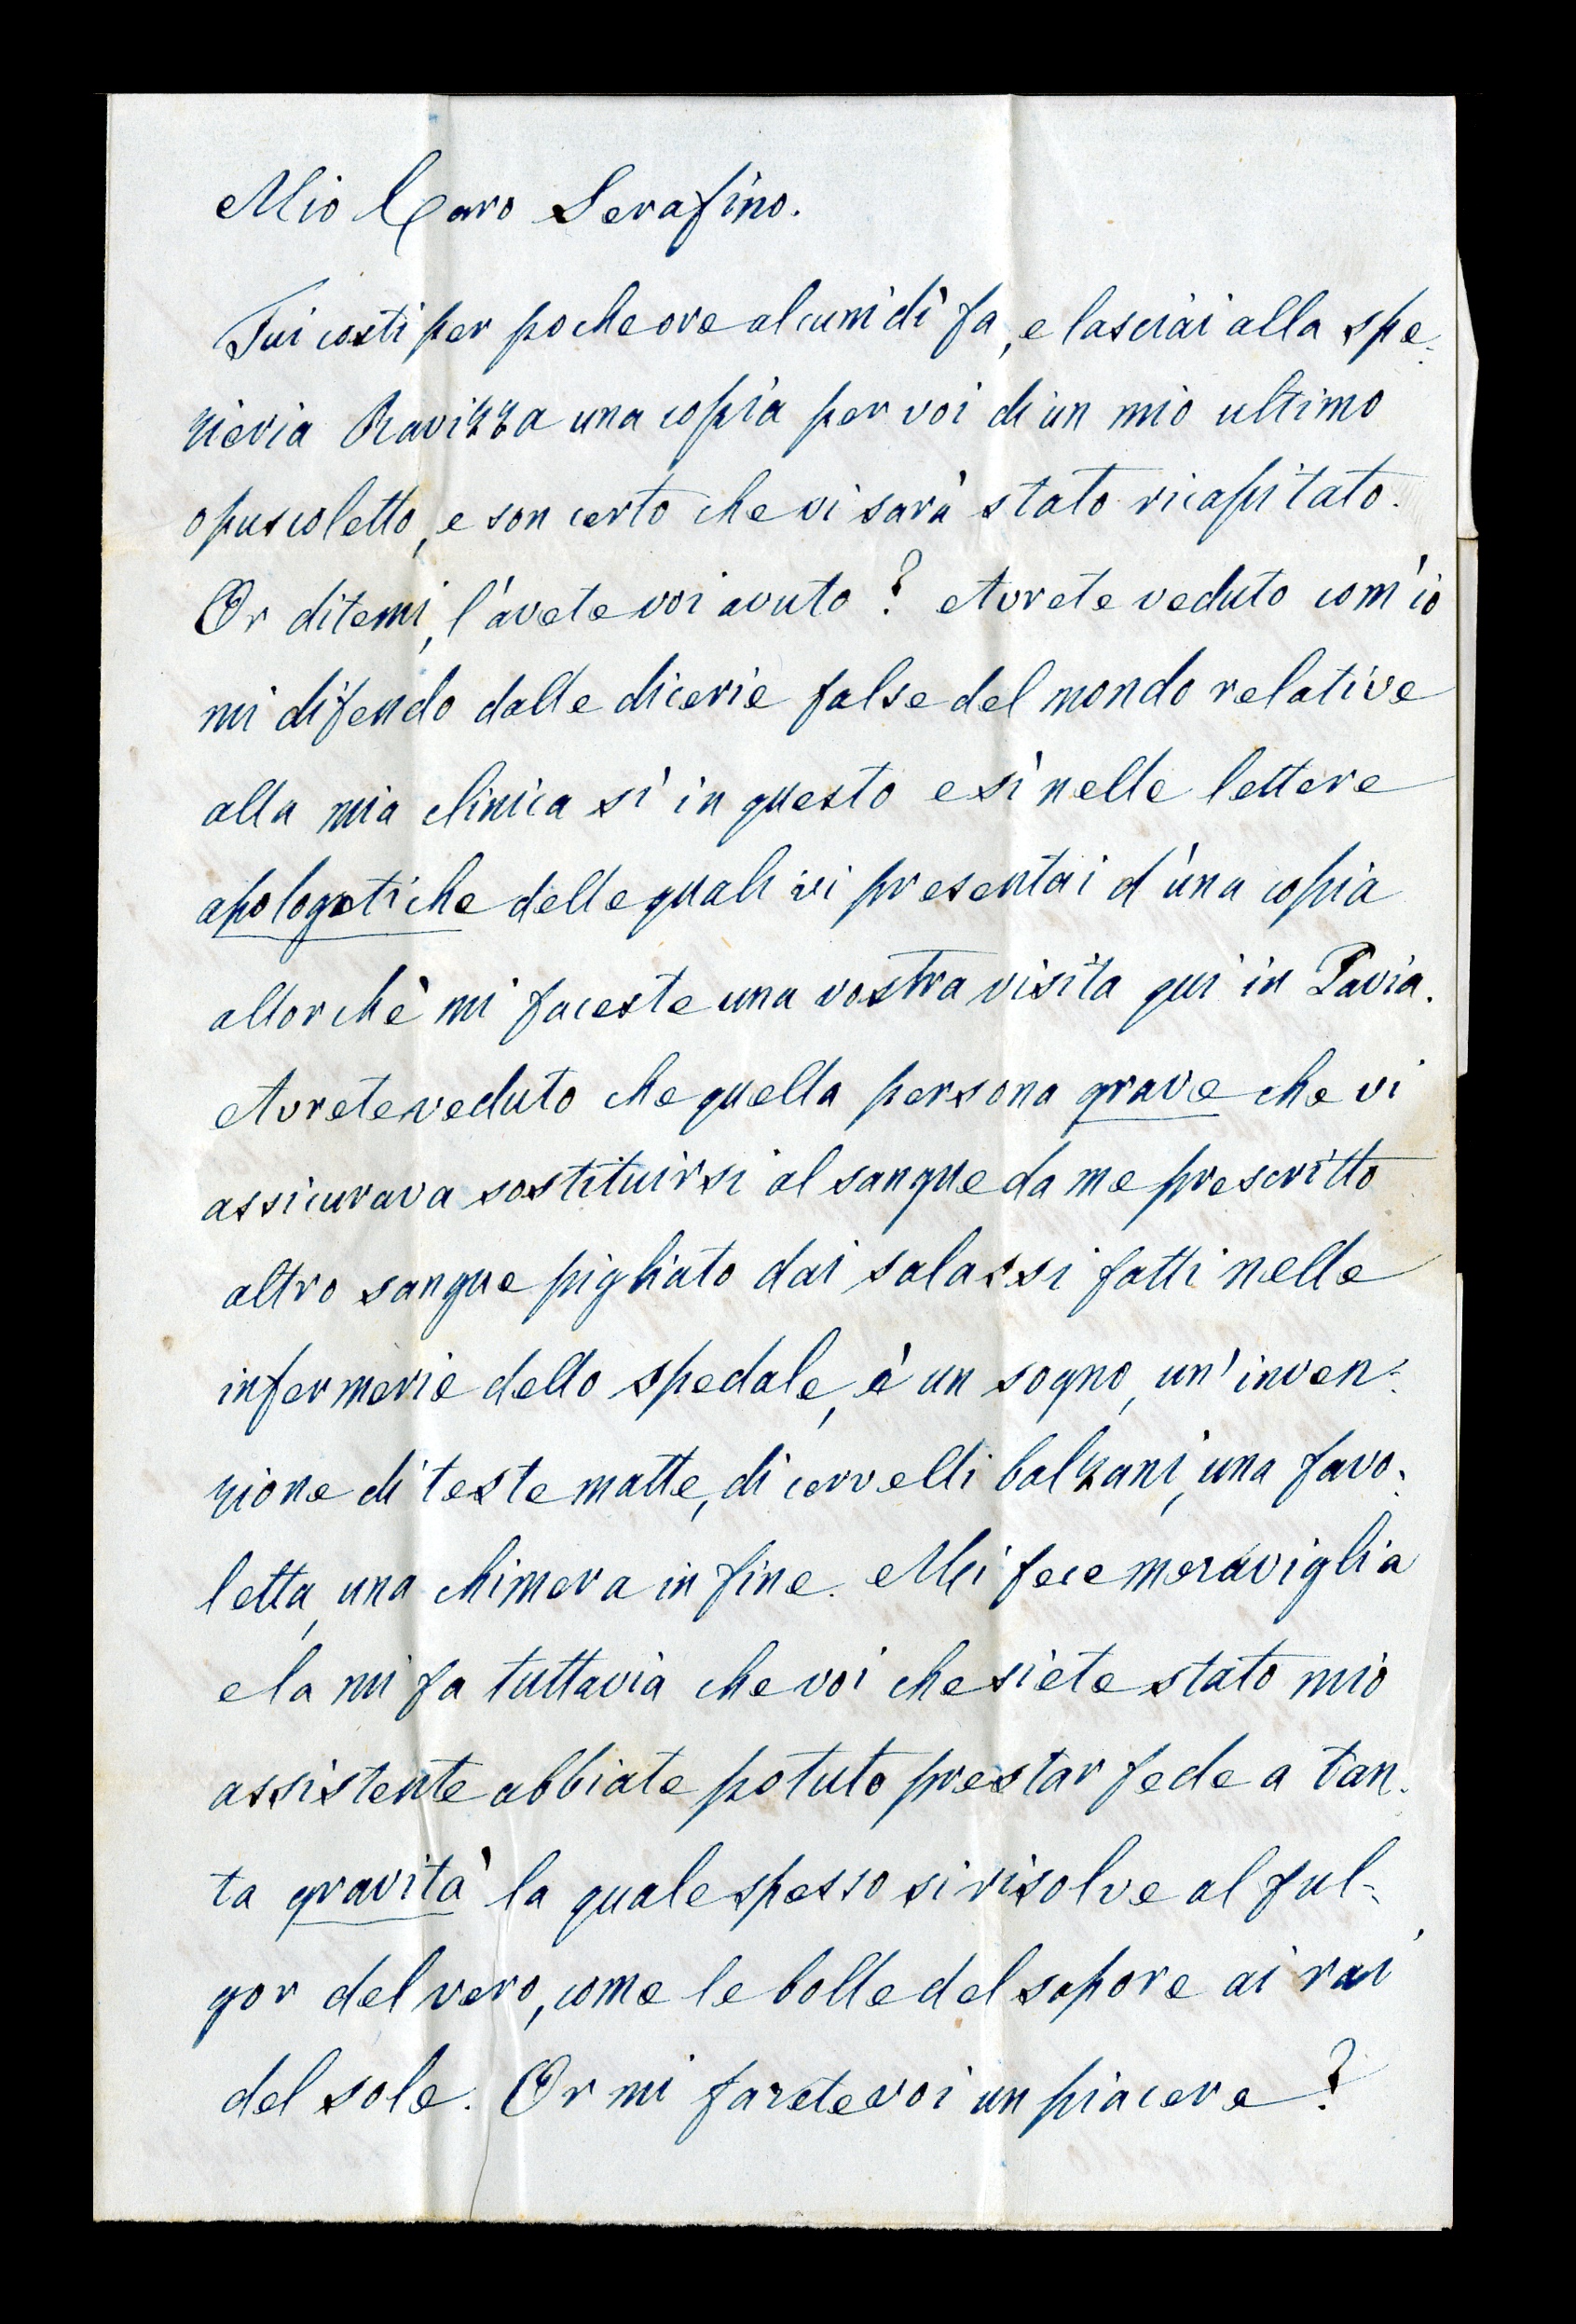 Mio Caro Serafino.
Fui costì per poche ore alcuni dì fa, e lasciai alla spe-
zieria Ravizza una copia per voi di un mio ultimo
opuscoletto, e son certo che vi sarà stato ricapitato.
Or ditemi, l'avete voi avuto? Avrete veduto com'io
mi difendo dalle dicerie false del mondo relative
alla mia clinica sì in questo e sì nelle lettere
apologetiche delle quali vi presentai d'una copia
allorchè mi faceste una vostra visita qui in Pavia.
Avrete veduto che quella persona grave che vi
assicurava sostituirsi al sangue da me prescritto
altro sangue pigliato dai salassi fatti nelle
infermerie dello spedale, è un sogno, un'inven-
zione di teste matte, di cervelli balzani, una favo-
letta, una chimera in fine. Mi fece meraviglia
e la mi fa tuttavia che voi che siete stato mio
assistente abbiate potuto prestar fede a tan-
ta gravità la quale spesso si risolve al ful-
gor del vero, come le bolle del sapone ai rai
del sole. Or mi farete voi un piacere?